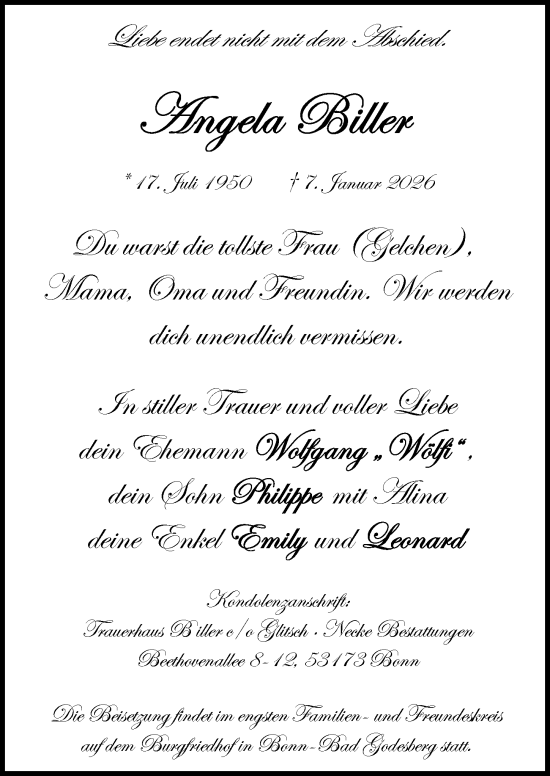 Liebe endet nicht mit dem Abschied.
Angela Biller
* 17. Juli 1950 † 7. Januar 2026
Du warst die tollste Frau (Gelchen),
Mama, Oma und Freundin. Wir werden
dich unendlich vermissen.
In stiller Trauer und voller Liebe
dein Ehemann Wolfgang „Wölfi“,
dein Sohn Philippe mit Alina
deine Enkel Emily und Leonard
Kondolenzanschrift:
Trauerhaus Biller c/o Glitsch · Necke Bestattungen
Beethovenallee 8-12, 53173 Bonn
Die Beisetzung findet im engsten Familien- und Freundeskreis
auf dem Burgfriedhof in Bonn-Bad Godesberg statt.